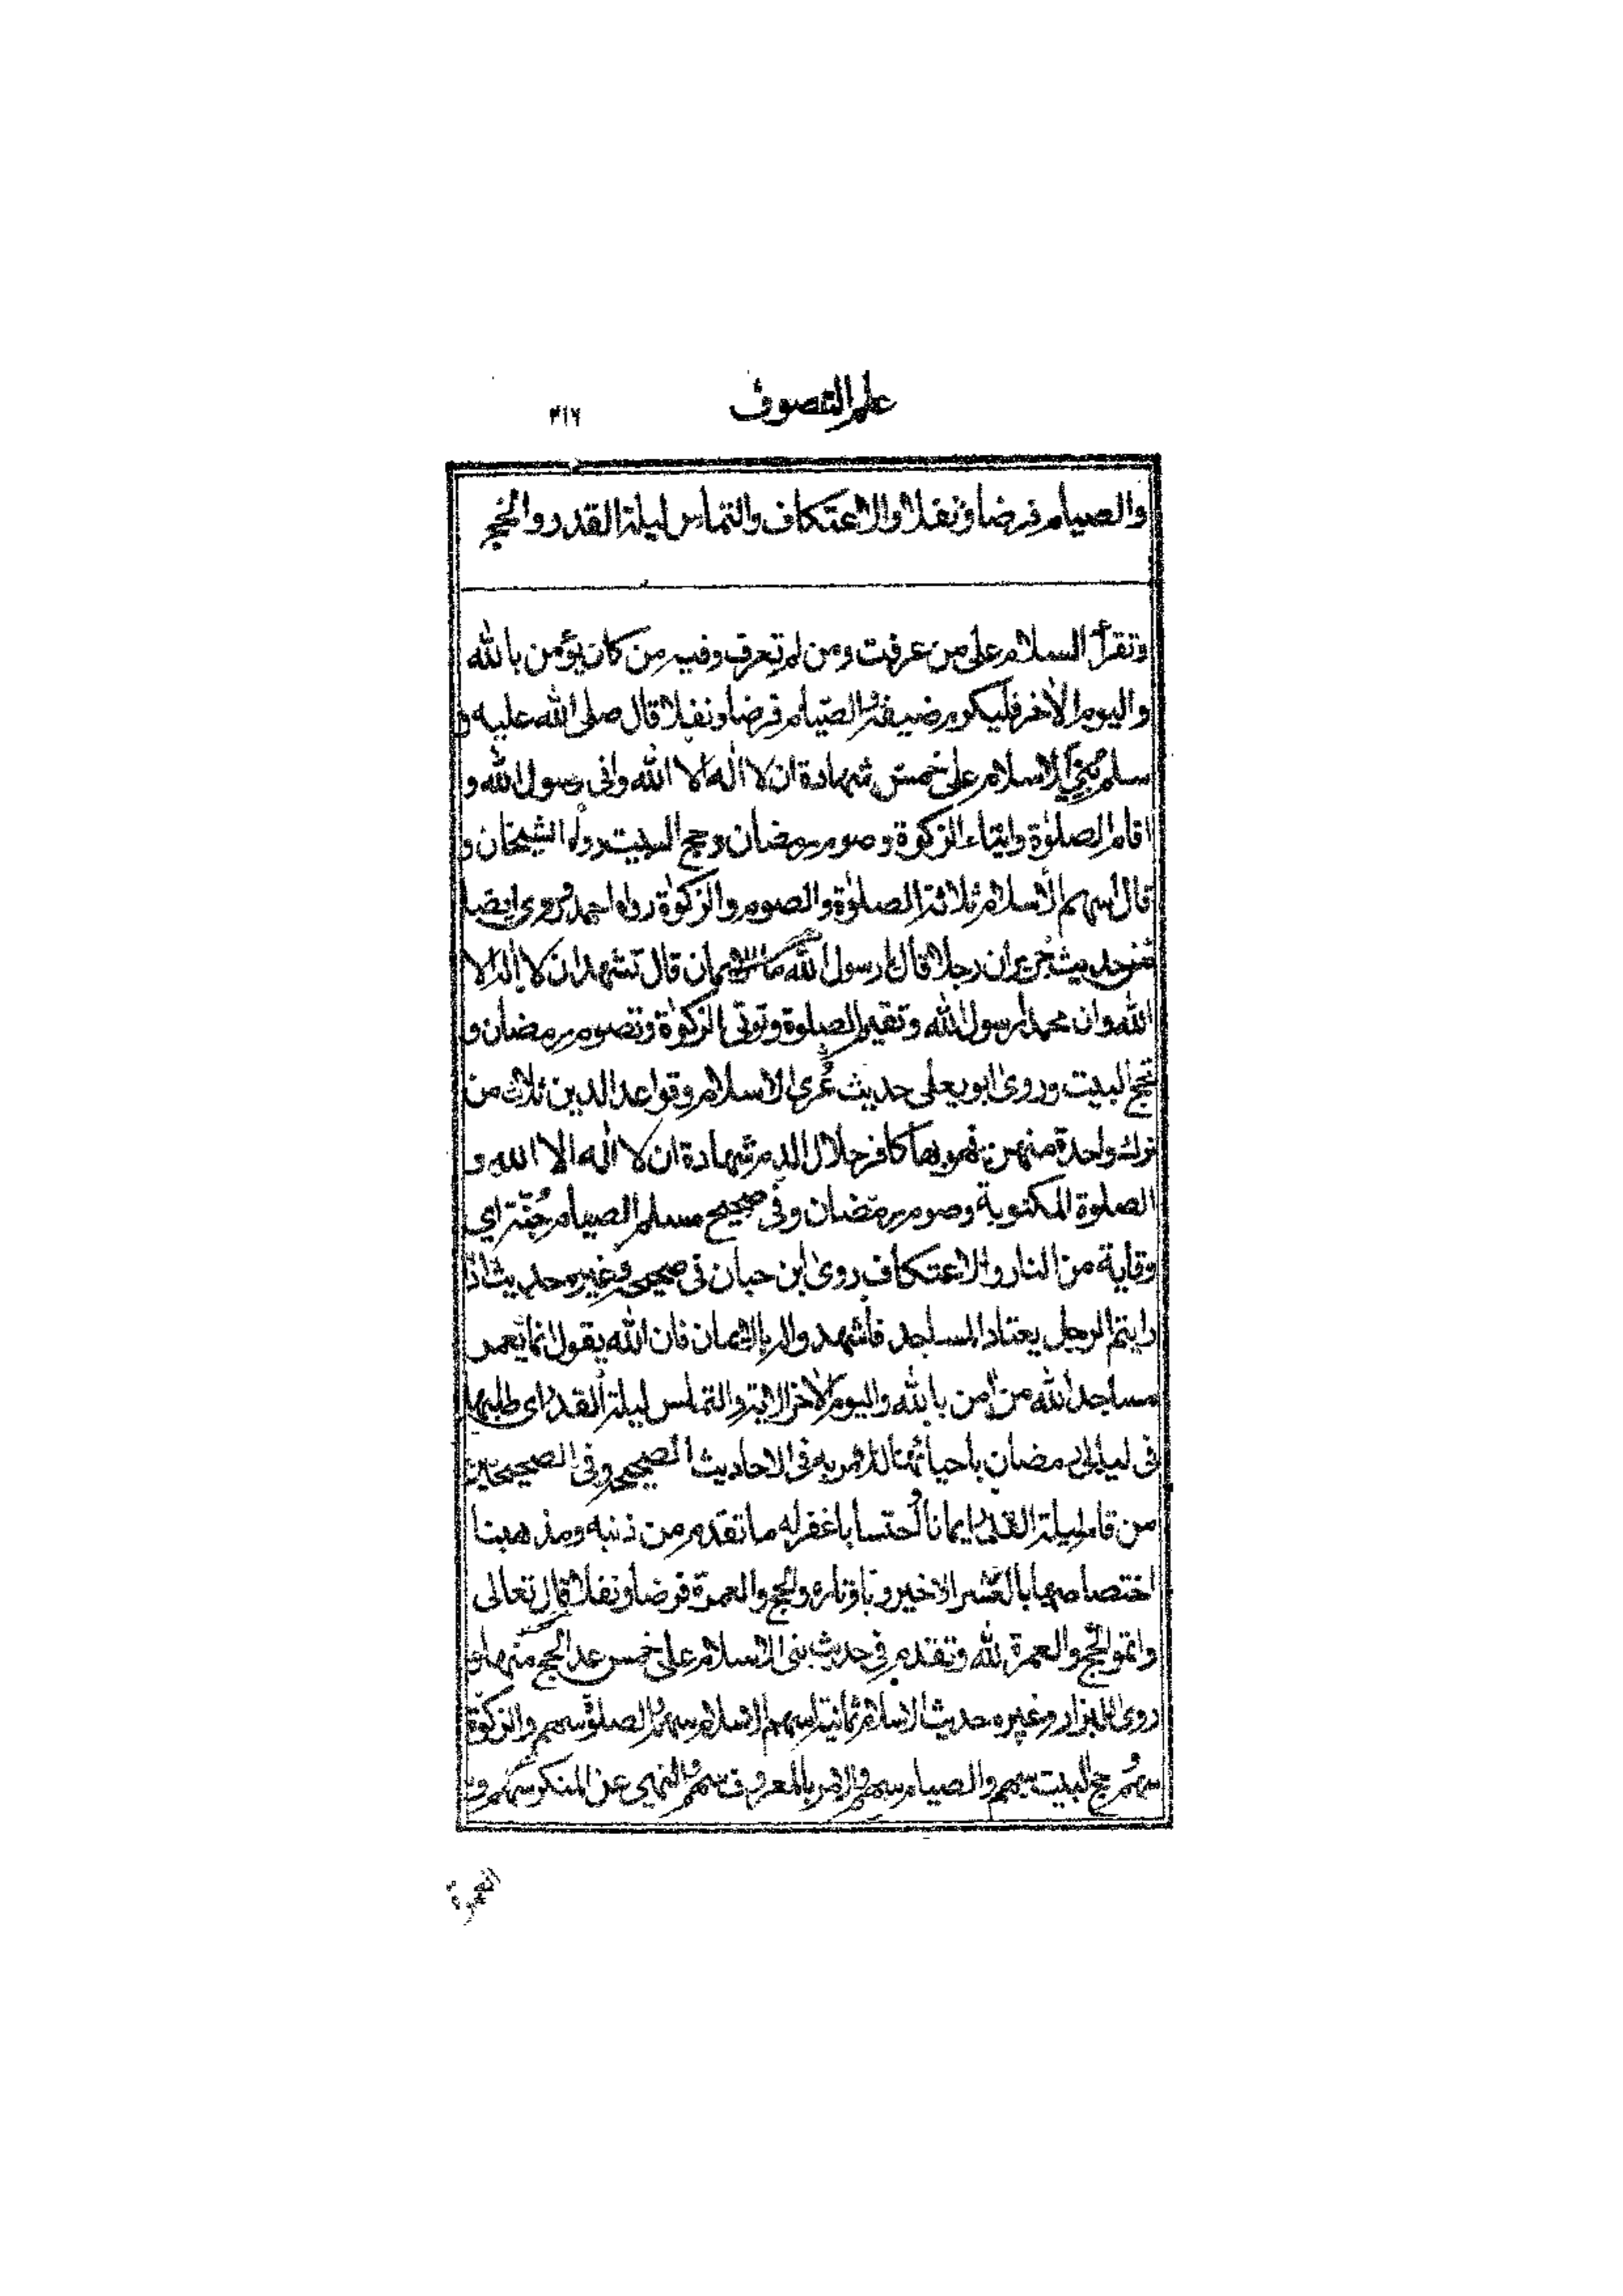 علم التصوف
٣١٧
والصيام فرضا ونفلا والاعتكاف والتماس ليلة القدر والحج
وتقرأ السلام على من عرفت ومن لم تعرف وفيه من كان يؤمن بالله
واليوم الآخر فليكرم ضيفه والصيام فرضا ونفلا قال صلى الله عليه و
سلم بُني الاسلام على خمس شهادة ان لا اله الا الله واني رسول الله و
اقام الصلوة وايتاء الزكوة وصوم رمضان وحج البيت رواه الشيخان و
قال اسهم الاسلام ثلاثة الصلوة والصوم والزكوة رواه احمد وروى ايضا
حديث جرير ان رجلا قال يا رسول الله ما الايمان قال تشهد ان لا اله الا
الله وان محمدا رسول الله وتقيم الصلوة وتوتي الزكوة وتصوم رمضان و
تحج البيت وروى ابو يعلى حديث عُرى الاسلام وقواعد الدين ثلاث من
ترك واحدة منهن فهو بها كافر حلال الدم شهادة ان لا اله الا الله و
الصلوة المكتوبة وصوم رمضان وفي صحيح مسلم الصيام جُنّة اي
وقاية من النار والاعتكاف روى ابن حبان في صحيحه وغيره حديث اذا
رايتم الرجل يعتاد المساجد فاشهدوا له بالايمان فان الله يقول انما يعمر
مساجد الله من آمن بالله واليوم الآخر الاية والتماس ليلة القدر اى طلبها
في ليالي رمضان باحيائها للامر به في الاحاديث الصحيحة وفي الصحيحين
من قام ليلة القدر ايمانا واحتسابا غفر له ما تقدم من ذنبه ومذهبنا
اختصاصها بالعشر الاخير وباوتاره والحج والعمرة فرضا ونفلا قال تعالى
واتموا الحج والعمرة لله وتقدم في حديث بنى الاسلام على خمس عد الحج منها و
روى البزار وغيره حديث الاسلام ثمانية اسهم الاسلام سهم والصلوة سهم والزكوة
سهم وحج البيت سهم والصيام سهم والامر بالمعروف سهم والنهي عن المنكر سهم و
العمرة